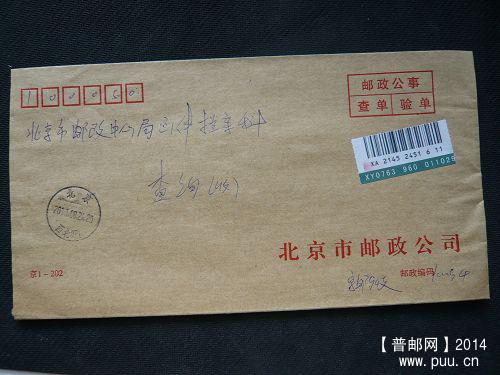 100050
邮政公事
查单 验单
北京市邮政中心局函件档案科
XA 2145 2451 6 11
XY0763 960 011026
查询(收)
北京
北京市邮政公司
京1-202
邮政编码
【普邮网】2014
www.puu.cn